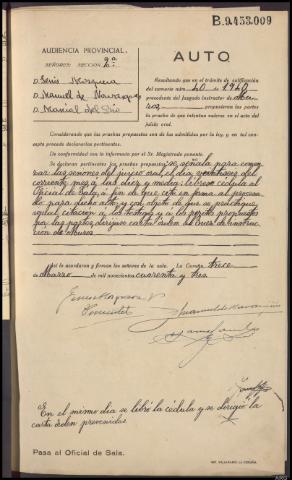 B.9.453.009
AUDIENCIA PROVINCIAL
SEÑORES: SECCIÓN 2ª
AUTO
D. Genis
D. Manuel de
D. Manuel del Río
Resultando que en el trámite de calificación
del sumario núm. 40 de 1940
procedente del Juzgado Instructor de
propusieron las partes
la prueba de que intentan valerse en el acto del
juicio oral.
Considerando que las pruebas propuestas son de las admitidas por la ley, y en tal con-
cepto procede declararlas pertinentes.
De conformidad con lo informado por el Sr. Magistrado ponente.
Se declaran pertinentes las pruebas propuestas; se señala para comen-
zar las sesiones del juicio oral el día veintinueve del
corriente mes a las diez y media; líbrese cédula al
Oficial de Sala, a fin de que cite en forma al procesa-
do para dicho acto, y con objeto de que se practique
igual citación a los testigos y a los peritos propuestos
por las partes diríjase carta orden al Juez de instruc-
ción de
Así lo acordaron y firman los señores de la sala. La Coruña trece
de Marzo de mil novecientos cuarenta y tres
En el mismo día se libró la cédula y se dirigió la
carta orden prevenidas
Pasa al Oficial de Sala.